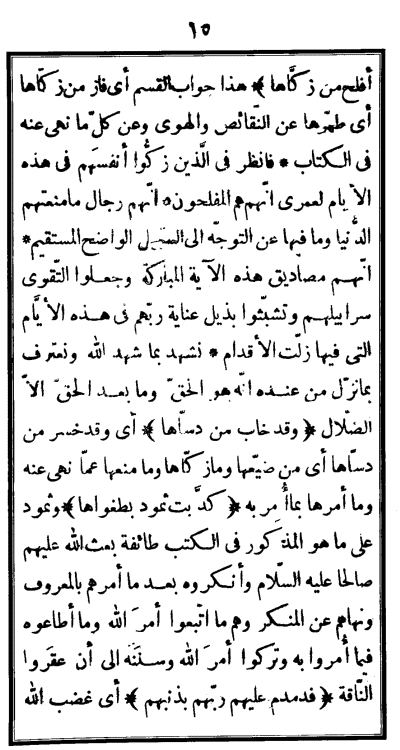 ١٥
أفلح من زكّاها ﴾ هذا جواب القسم أى فاز من زكّاها
أى طهّرها عن النّقائص والهوى وعن كلّ ما نهى عنه
فى الكتاب * فانظر فى الّذين زكّوا أنفسهم فى هذه
الأيام لعمرى انّهم هم المفلحون * انّهم رجال ما منعتهم
الدّنيا وما فيها عن التوجّه الى السّبيل الواضح المستقيم *
انّهم مصاديق هذه الآية المباركة وجعلوا التّقوى
سرابيلهم وتشبّثوا بذيل عناية ربّهم فى هذه الأيّام
التى فيها زلّت الأقدام * نشهد بما شهد الله ونعترف
بما نزّل من عنده انّه هو الحقّ وما بعد الحقّ الّا
الضّلال ﴿ وقد خاب من دسّاها ﴾ أى وقد خسر من
دسّاها أى من ضيّعها وما زكّاها وما منعها عمّا نهى عنه
وما أمرها بما أُمر به ﴿ كذّبت ثمود بطغواها ﴾ وثمود
على ما هو المذكور فى الكتب طائفة بعث الله عليهم
صالحا عليه السّلام وأنكروه بعد ما أمرهم بالمعروف
ونهاهم عن المنكر وهم ما اتّبعوا أمرَ الله وما أطاعوه
فيما أُمروا به وتركوا أمرَ الله وسنَنَه الى أن عقروا
النّاقة ﴿ فدمدم عليهم ربّهم بذنبهم ﴾ أى غضب الله